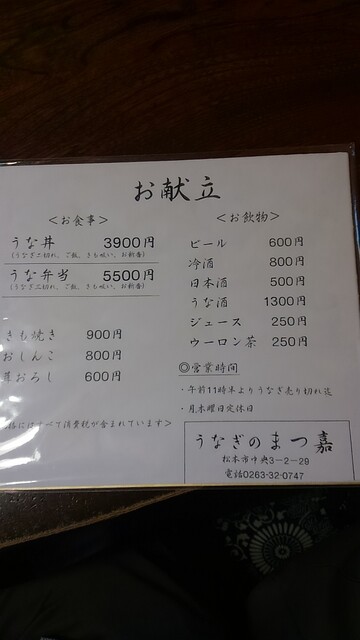 お献立
＜お食事＞
うな丼 3900円
(うなぎ二切れ、ご飯、きも吸い、お新香)
うな弁当 5500円
(うなぎ三切れ、ご飯、きも吸い、お新香)
きも焼き 900円
おしんこ 800円
おろし 600円
にはすべて消費税が含まれています＞
＜お飲物＞
ビール 600円
冷酒 800円
日本酒 500円
うな酒 1300円
ジュース 250円
ウーロン茶 250円
◎営業時間
・午前11時半よりうなぎ売り切れ迄
・月木曜日定休日
うなぎのまつ嘉
松本市中央3-2-29
電話0263-32-0747